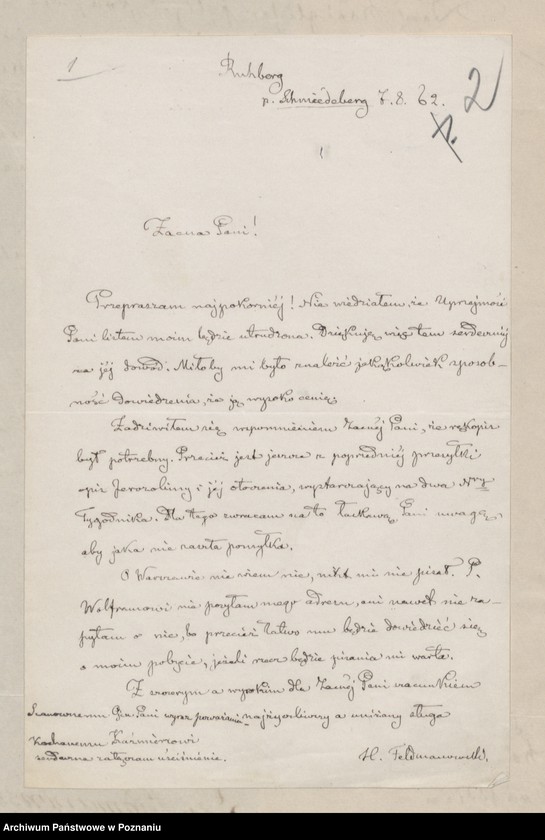 1
Ruhberg
2
p. Schmiedeberg 7. 8. 62.
Zacna Pani!
Przepraszam najpokorniéj! Nie wiedziałem, że Uprzejmość
Pani listem moim będzie utrudzona. Dziękuję więc tem serdeczniéj
za jéj dowód. Miłoby mi było znaleźć jakąkolwiek sposob-
ność dowiedzenia, że ją wysoko cenię.
Zadziwiłem się wspomnieniem Zacnéj Pani, że rękopis
był potrzebny. Przecież jest jeszcze z poprzedniéj przesyłki
opis Jerozolimy i jéj otoczenia, wystarczający na dwa Nry
Tygodnika. Dla tego zwracam na to łaskawą Pani uwagę,
aby jaka nie zaszła pomyłka.
O Warszawie nie wiem nic, nikt mi nie pisał. P.
Wolframowi nie posyłam mego adresu, ani nawet nie za-
pytam o nic, bo przecież łatwo mu będzie dowiedzieć się
o moim pobycie, jeżeli rzecz będzie pisania mi warta.
Z szczerym a wysokim dla Zacnéj Pani szacunkiem
Szanownemu Panu wyraz poważania najżyczliwszy a uniżony sługa
Kochanemu Kaźmierzowi
serdeczne załączam uściśnienie. H. Feldmanowski.
Archiwum Państwowe w Poznaniu